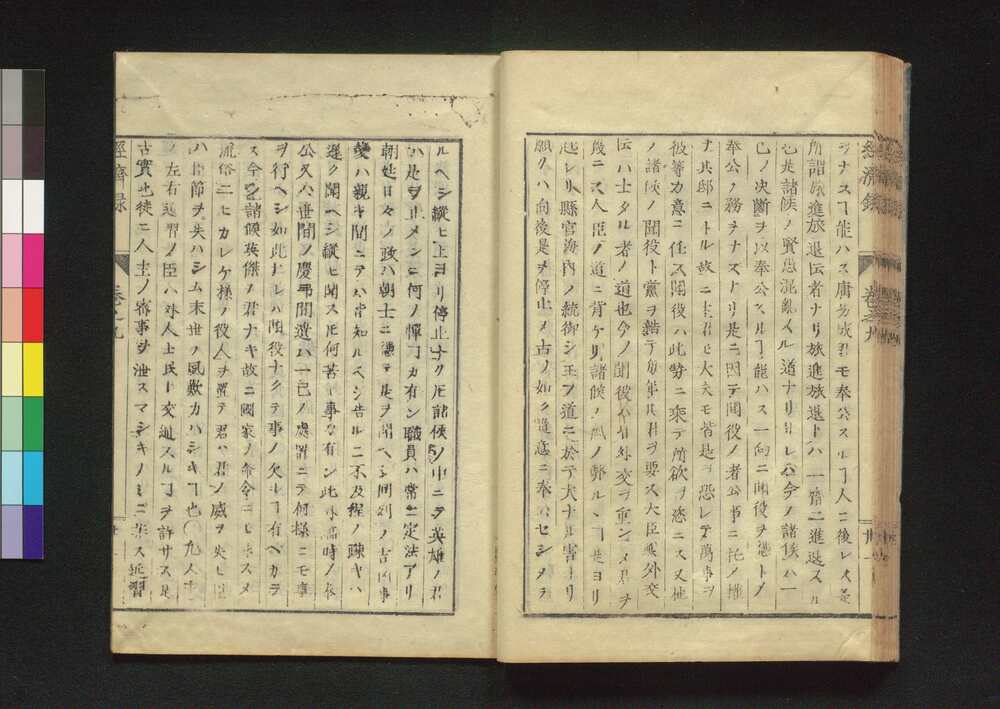 ヲナスヿ能ハス庸劣ノ君モ奉公スルヿ人ニ後レス是
所謂旅進旅退ト云者ナリ旅進旅退トハ一齊ニ進退スル
也是諸候ノ賢愚混亂スル道ナリ且レ古今ノ諸候ハ一
己ノ决斷ヲ以奉公スルヿ能ハス一向ニ聞役ヲ憑トノ
奉公ノ務ヲナスナリ是ニ因テ聞役ノ者公事ニ托ノ權
ヲ其邸ニトル故ニ主君モ大夫モ皆是ヲ恐レテ萬事ヲ
彼等カ意ニ任ス聞役ハ此勢ニ乘テ所欲ヲ恣ニス又他
ノ諸候ノ聞役ト黨ヲ結テ動モスレハ君ヲ要ス大臣ニ外交
云ハ士タル者ノ道也今ノ聞役ハ外交ヲ重ンメ君ヲ
後ニス人臣ノ道ニ背ケリ諸候ノ風ノ弊ルヽヿ是ヨリ
起レリ縣官海内ノ統御シ玉フ道ニ於テ大ナル害アリ
願クハ向後是ヲ停止メ古ノ如ク隨意ニ奉公セシメヲ
經濟録 卷之九 廿一
ルヘシ縱ヒ上ヨリ停止ナクモ諸候ノ中ニテ英雄ノ君
ハ是ヲ止メンニ何ノ憚カ有ン職員ハ常ニ定法アリ
朝廷日々ノ政ハ朝士ニ憑テ是ヲ聞ヘシ同列ノ吉凶事
變ハ親キ間ニテハ常知ルヘシ告ルニ不及程ノ疎キハ
遲ク聞ヘシ縱ヒ聞スモ何苦キ事カ有ン此外臨時ノ
公又ハ世間ノ慶弔聞遺ハ一己ノ處置ニテ何樣ニモ事
ヲ行ヘシ如此ナレハ聞役ナクテ事ノ欠ルヿ有ヘカラ
ス今ノ諸候英傑ノ君ナキ故ニ國家ノ命令ニモ
流俗ニヒカレケ樣ノ役人ヲ置テ君ハ君ノ威ヲ失ヒ
ハ臣節ヲ失ハシム末世ノ風歎カハシキヿ也〇凡人主
ノ左右近習ノ臣ハ外人士民ト交通スルヿヲ許サス是
古實也徒ニ人主ノ密事ヲ泄スマシキノミニ非ス近習
經濟録 卷之九